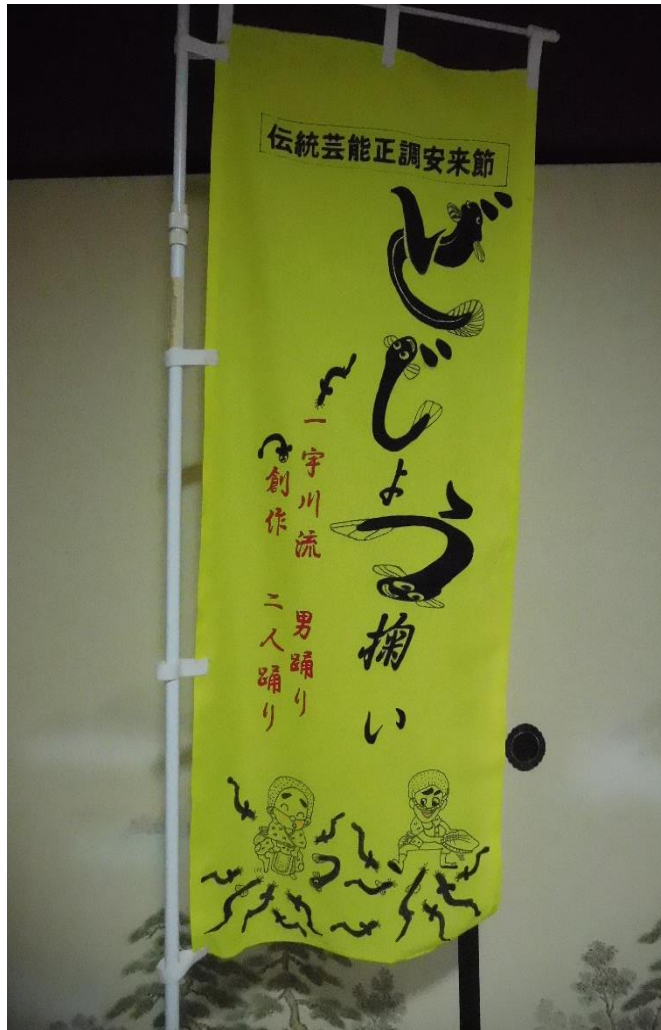 伝統芸能正調安来節
どじょう掬い
一宇川流 男踊り
創作 二人踊り